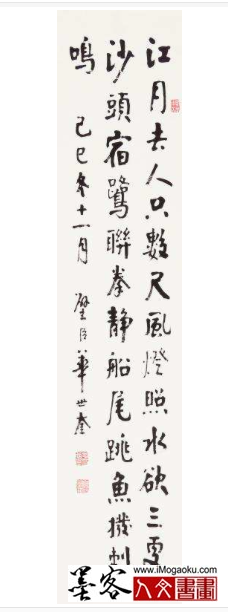 江月去人只數尺風燈照水欲三更
沙頭宿鷺聯拳靜船尾跳魚撥剌
鳴
己巳冬十一月 璧臣華世奎
www.iMogaoku.com
墨客 人文書畫